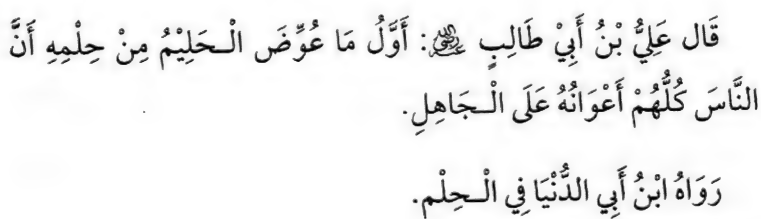 قَال عَلِيُّ بْنُ أَبِيْ طَالِبٍ ﷺ: أَوَّلُ مَا عُوِّضَ الْحَلِيْمُ مِنْ حِلْمِهِ أَنَّ
النَّاسَ كُلُّهُمْ أَعْوَانُهُ عَلَى الْجَاهِلِ.
رَوَاهُ ابْنُ أَبِي الدُّنْيَا فِي الْحِلْم.